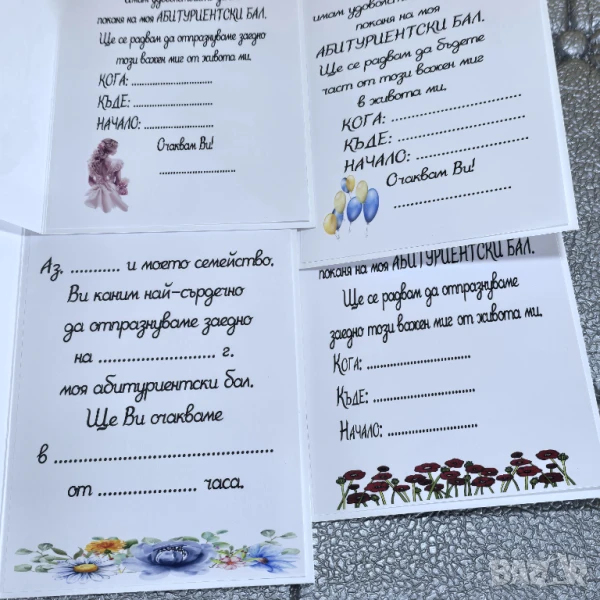 имам удоволствието да
поканя на моя
АБИТУРИЕНТСКИ БАЛ.
Ще се радвам да отпразнуваме заедно
този важен миг от живота ми.
КОГА: ........................
КЪДЕ: ........................
НАЧАЛО: ....................
Очаквам Ви!
......................
имам удоволствието
поканя на моя
АБИТУРИЕНТСКИ БАЛ.
Ще се радвам да бъдете
част от този важен миг
в живота ми.
КОГА: ................................
КЪДЕ: ................................
НАЧАЛО: ............................
Очаквам Ви!
..........................
Аз, ........... и моето семейство,
Ви каним най-сърдечно
да отпразнуваме заедно
на ........................ г.
моя абитуриентски бал.
Ще Ви очакваме
в .......................................
от ............... часа.
поканя на моя АБИТУРИЕНТСКИ БАЛ.
Ще се радвам да отпразнуваме
заедно този важен миг от живота ми.
КОГА: ..............................
КЪДЕ: ..............................
НАЧАЛО: ..........................
BAZAR